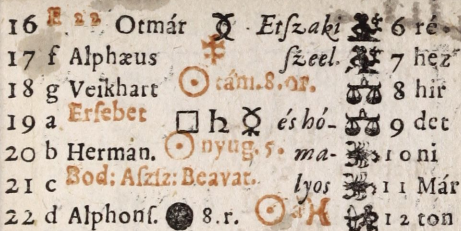 16 E 22 Otmár ☿ Etſzaki 6 ré-
17 f Alphæus ſzeel. 7 hez
18 g Veikhart ☉ tám. 8. or. ♎ 8 hir
19 a Erſebet □ ♄ ☿ és hó- ♎ 9 det
20 b Herman. ☉ nyug. 5. ma- 10 ni
21 c Bod: Aſzſz: Beavat. lyos 11 Már
22 d Alphonſ. ● 8. r. ☉ ♓ 12 ton